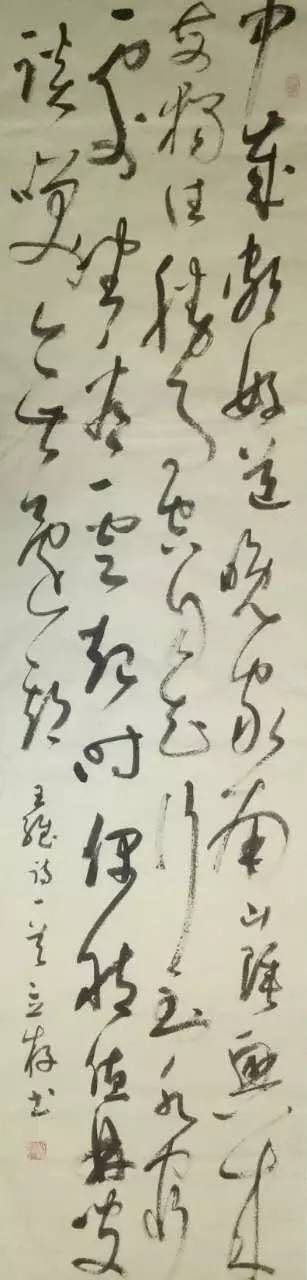 中歲頗好道晚家南山陲興來
每獨往勝事空自知行到水窮
處坐看雲起時偶然值林叟
談笑無還期
王維詩一首立存書